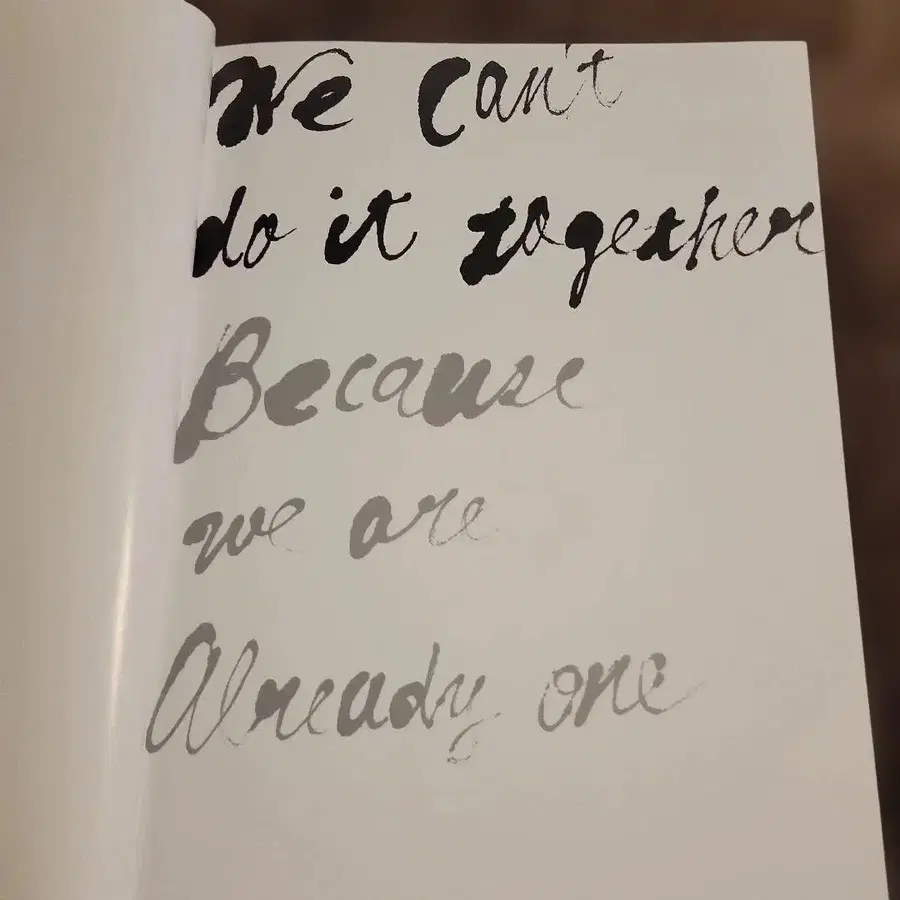 We can't
do it together
Because
we are
Already one